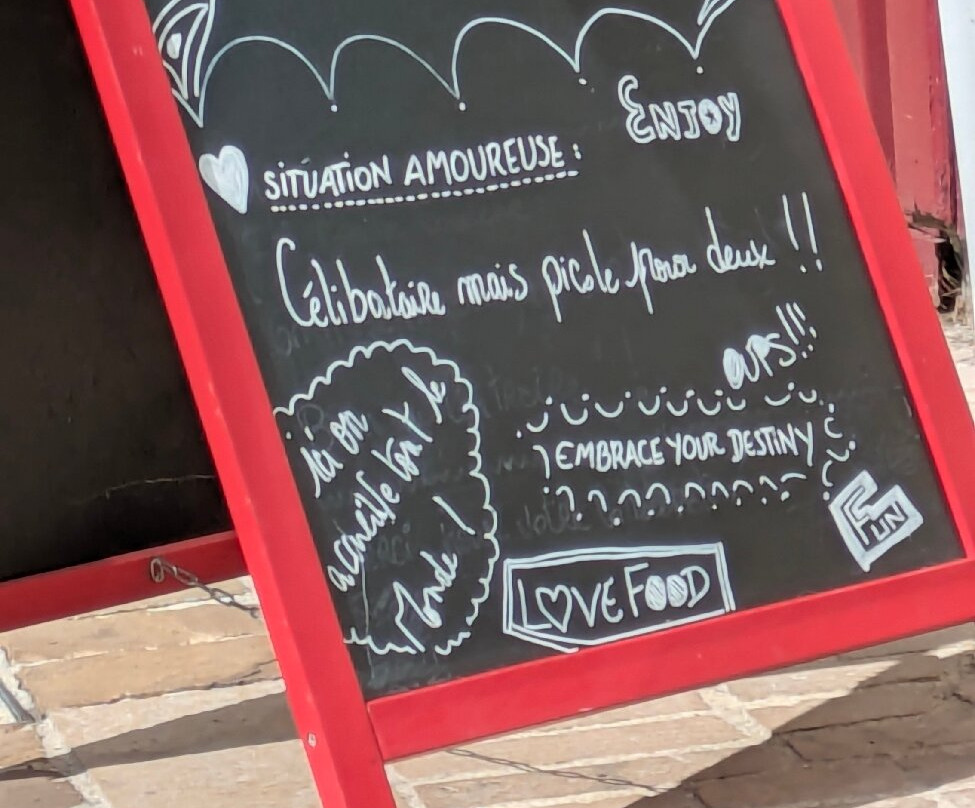 ENJOY
SITUATION AMOUREUSE :
Célibataire mais picole pour deux !!
OUPS!!!
EMBRACE YOUR DESTINY
Ici on
accueille tout le
Monde !
FUN
LOVE FOOD